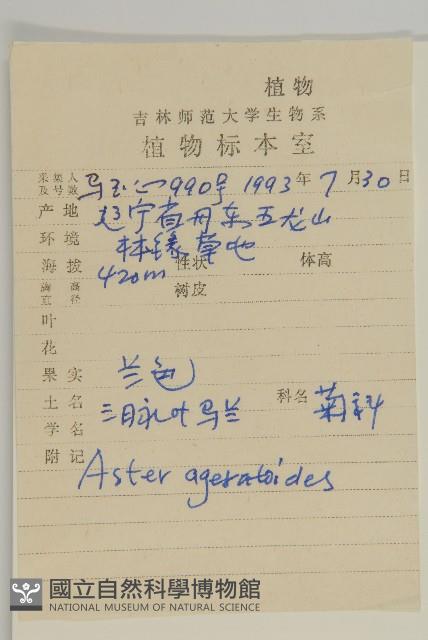 植物
吉林师范大学生物系
植物标本室
采集人及号数 马玉心 990号 1993年 7月30日
产地 辽宁省丹东五龙山
环境 林缘草地
海拔 420m 性状 体高
胸高直径 树皮
叶
花
果实 兰色
土名 三脉叶马兰 科名 菊科
学名
附记 Aster ageratoides
國立自然科學博物館
NATIONAL MUSEUM OF NATURAL SCIENCE